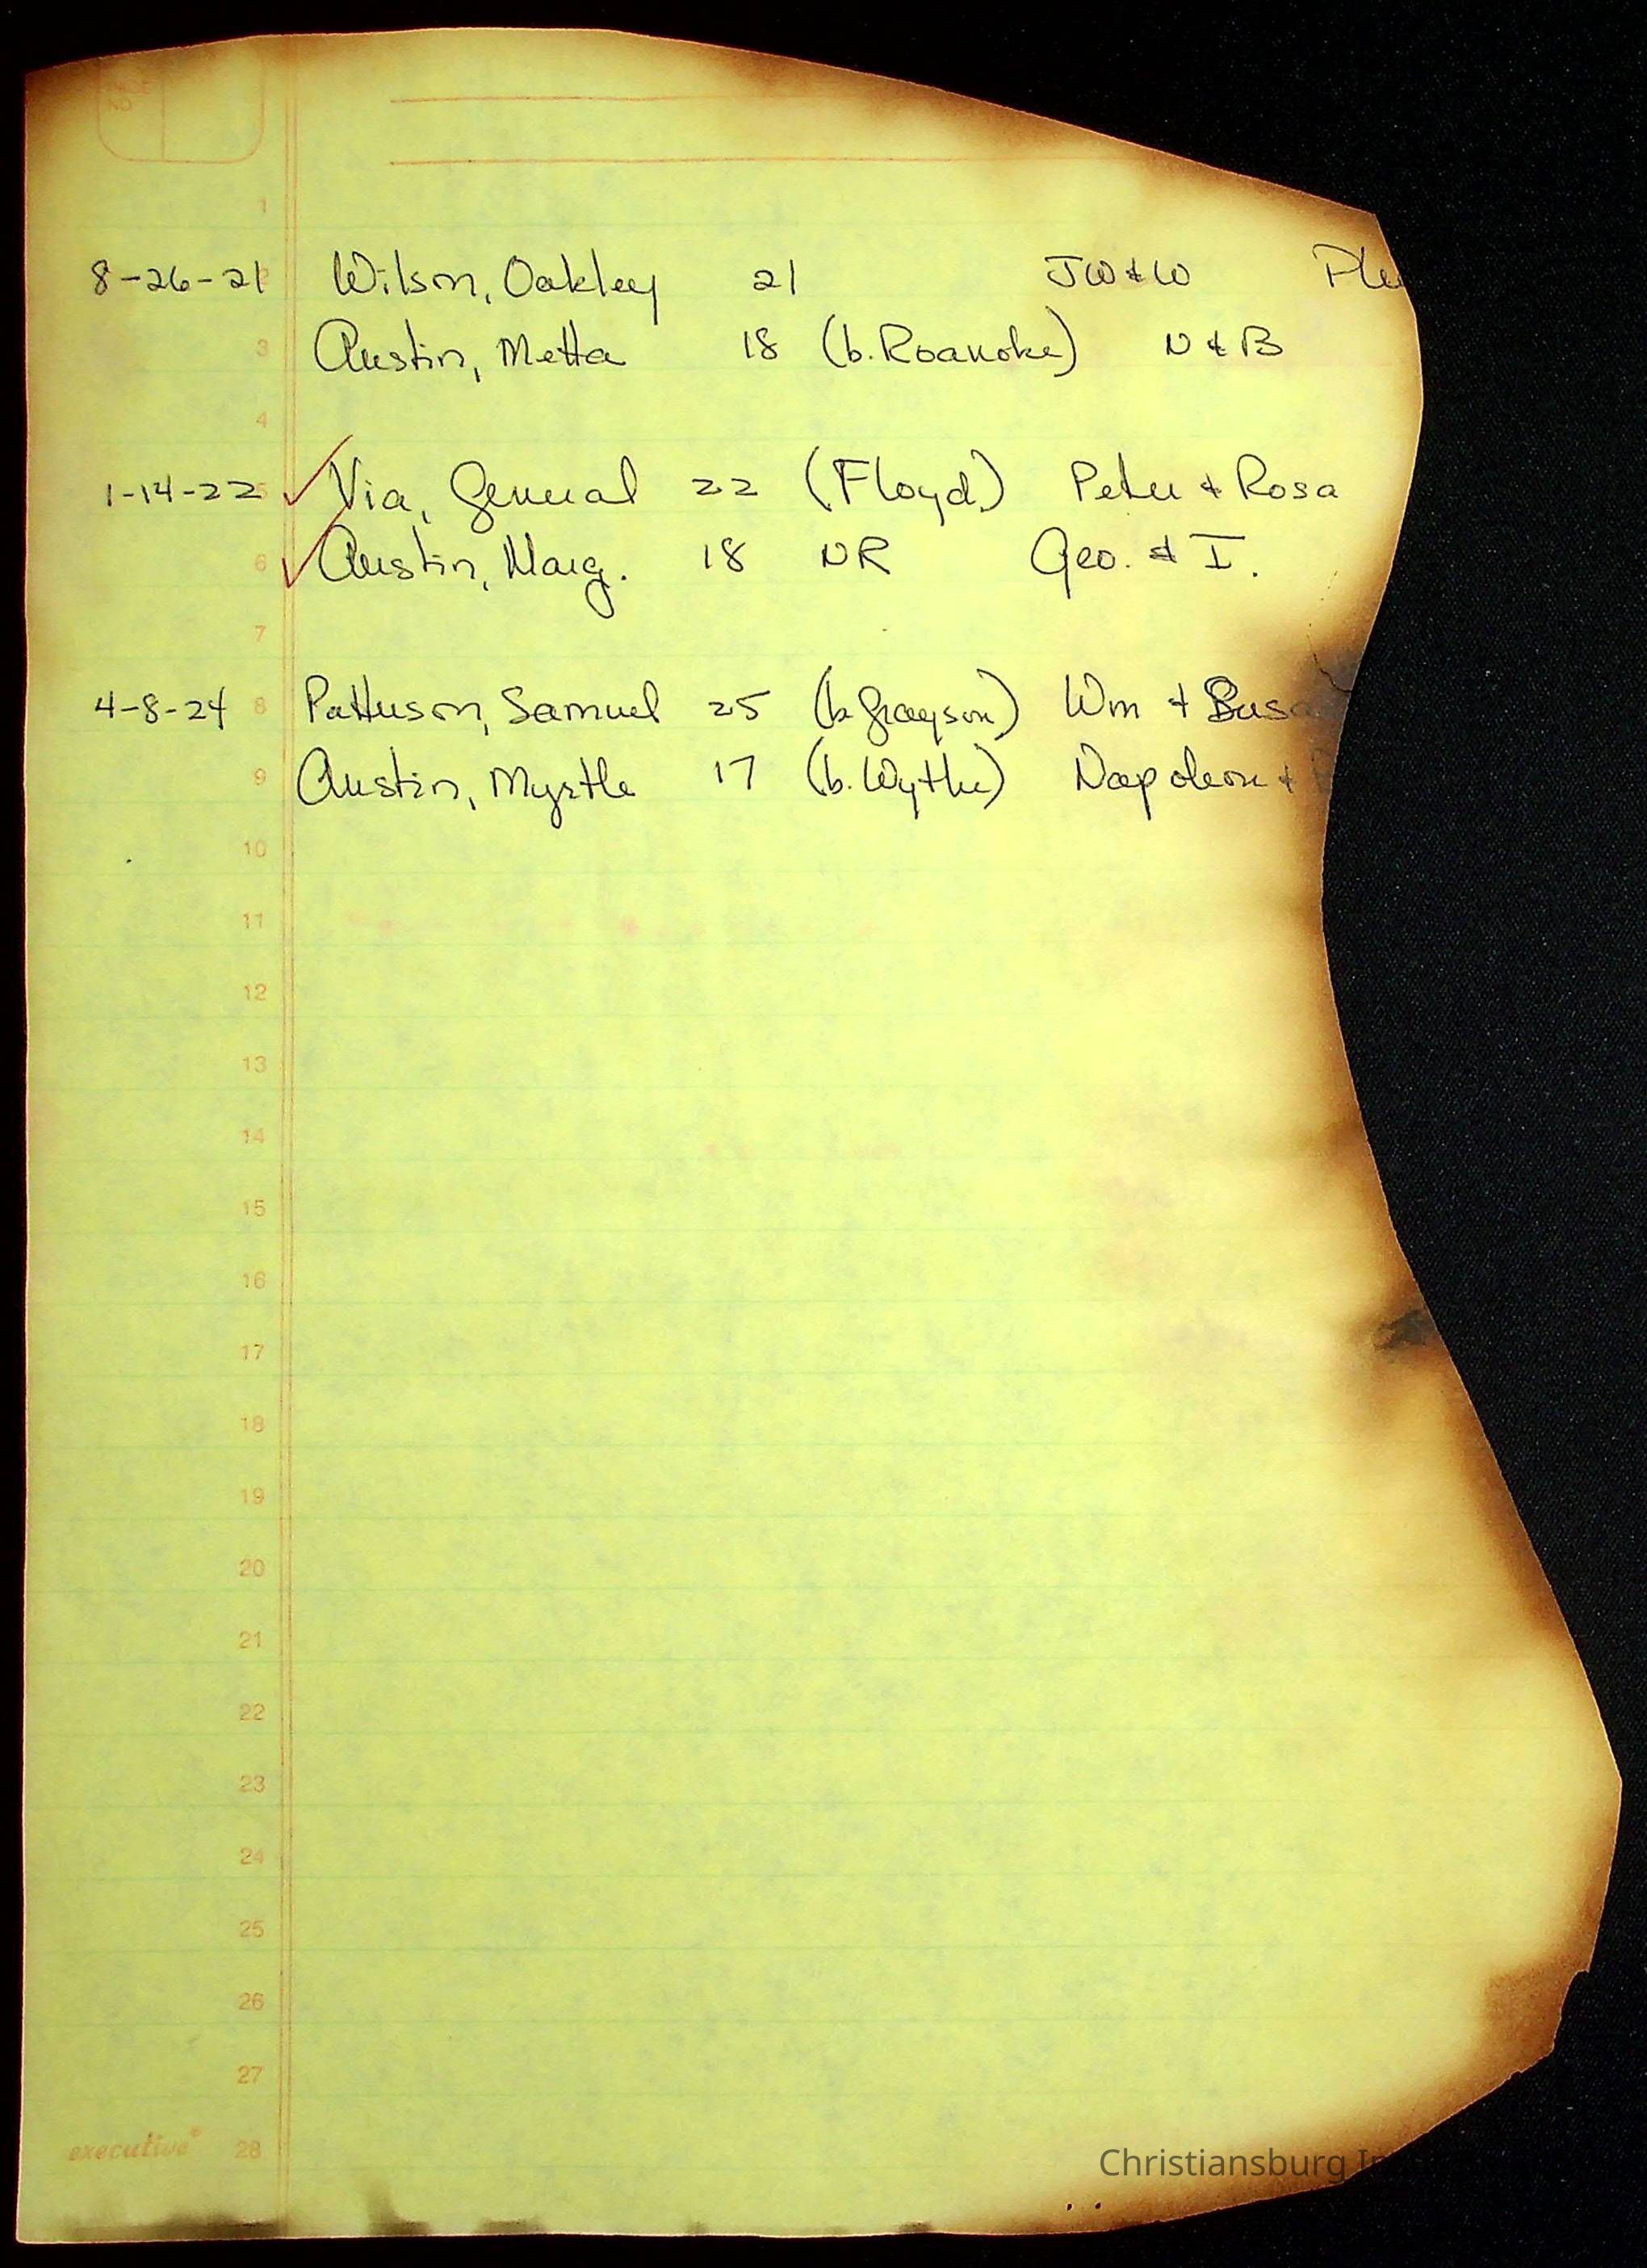 8-26-21 Wilson, Oakley 21 JW & W
Austin, Metta 18 (b. Roanoke) N & B
1-14-22 Via, General 22 (Floyd) Peter & Rosa
Austin, Marg. 18 NR Geo. & I.
4-8-24 Patterson, Samuel 25 (b. Grayson) Wm +
Austin, Myrtle 17 (b. Wythe) Napoleon +
1
2
3
4
5
6
7
8
9
10
11
12
13
14
15
16
17
18
19
20
21
22
23
24
25
26
27
28
executive
Christiansburg